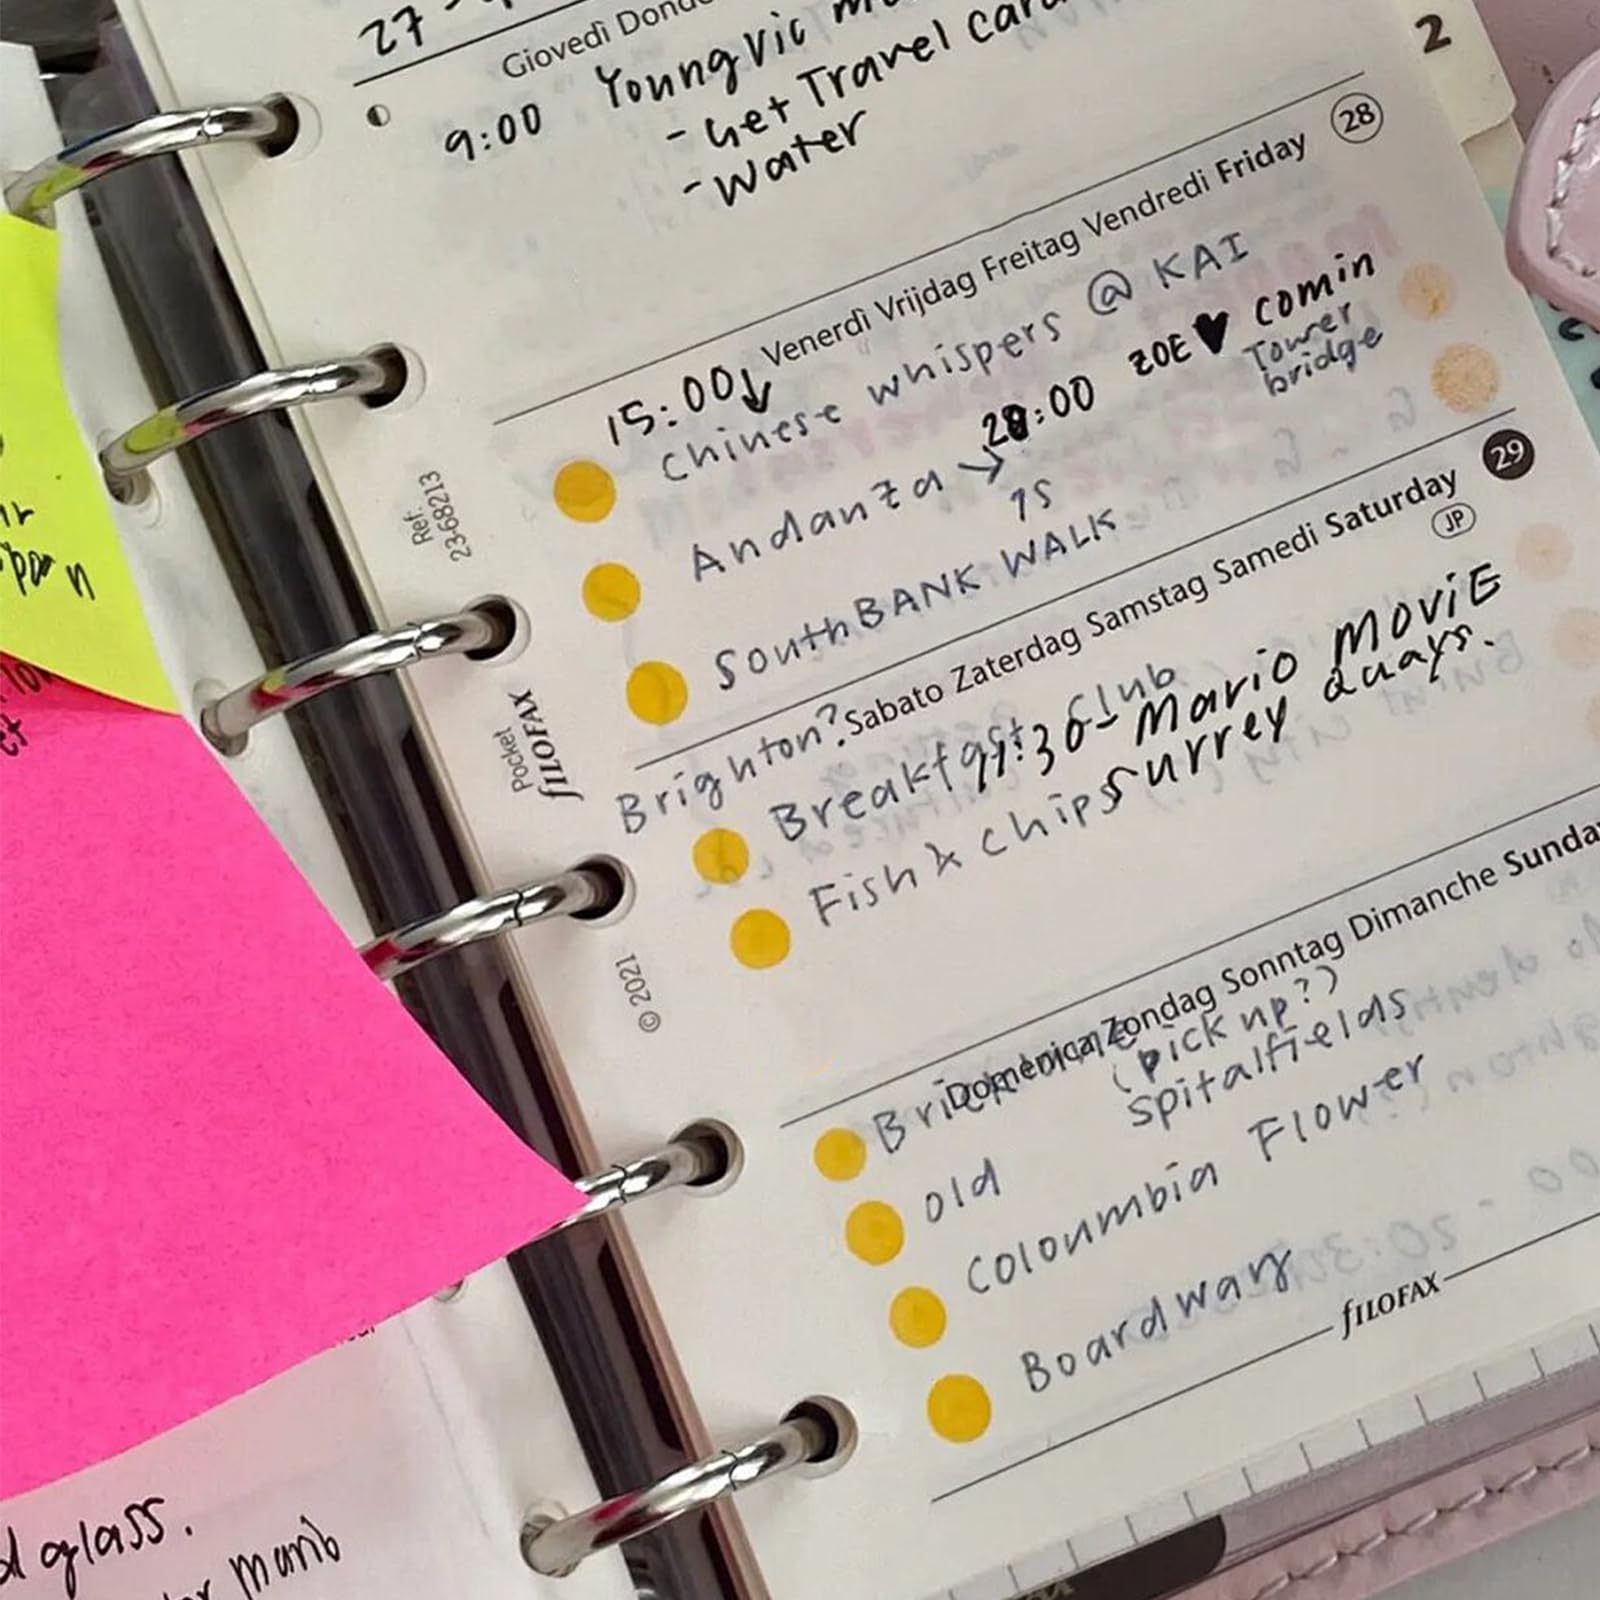 27 -
Giovedì Donde
9:00 Young Vic
- Get Travel card
- Water
2
Venerdì Vrijdag Freitag Vendredi Friday 28
15:00↓
Chinese whispers @ KAI
Andanza → :00 ZOE ♥ comin
Tower
bridge
15
South BANK WALK
Sabato Zaterdag Samstag Samedi Saturday 29
JP
Brighton?
Breakfast Club
11:30 - Mario MOViE
Fish & chips
Surrey Quays.
Domenica Zondag Sonntag Dimanche Sunday
(pick up?)
Brick
Old Spitalfields
Coloumbia Flower
Boardway
fILOFAX
Ref:
2368213
Pocket
fILOFAX
© 2021
glass.